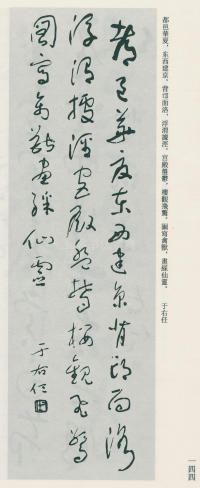 都邑華夏，东西建京，背邙面洛，浮渭據涇，宫殿盤鬱，樓觀飛驚，圖寫禽獸，畫綵仙靈。 于右任
一四四
都邑華夏东西建京背邙面洛
浮渭據涇宫殿盤鬱樓觀飛驚
圖寫禽獸畫綵仙靈
于右任